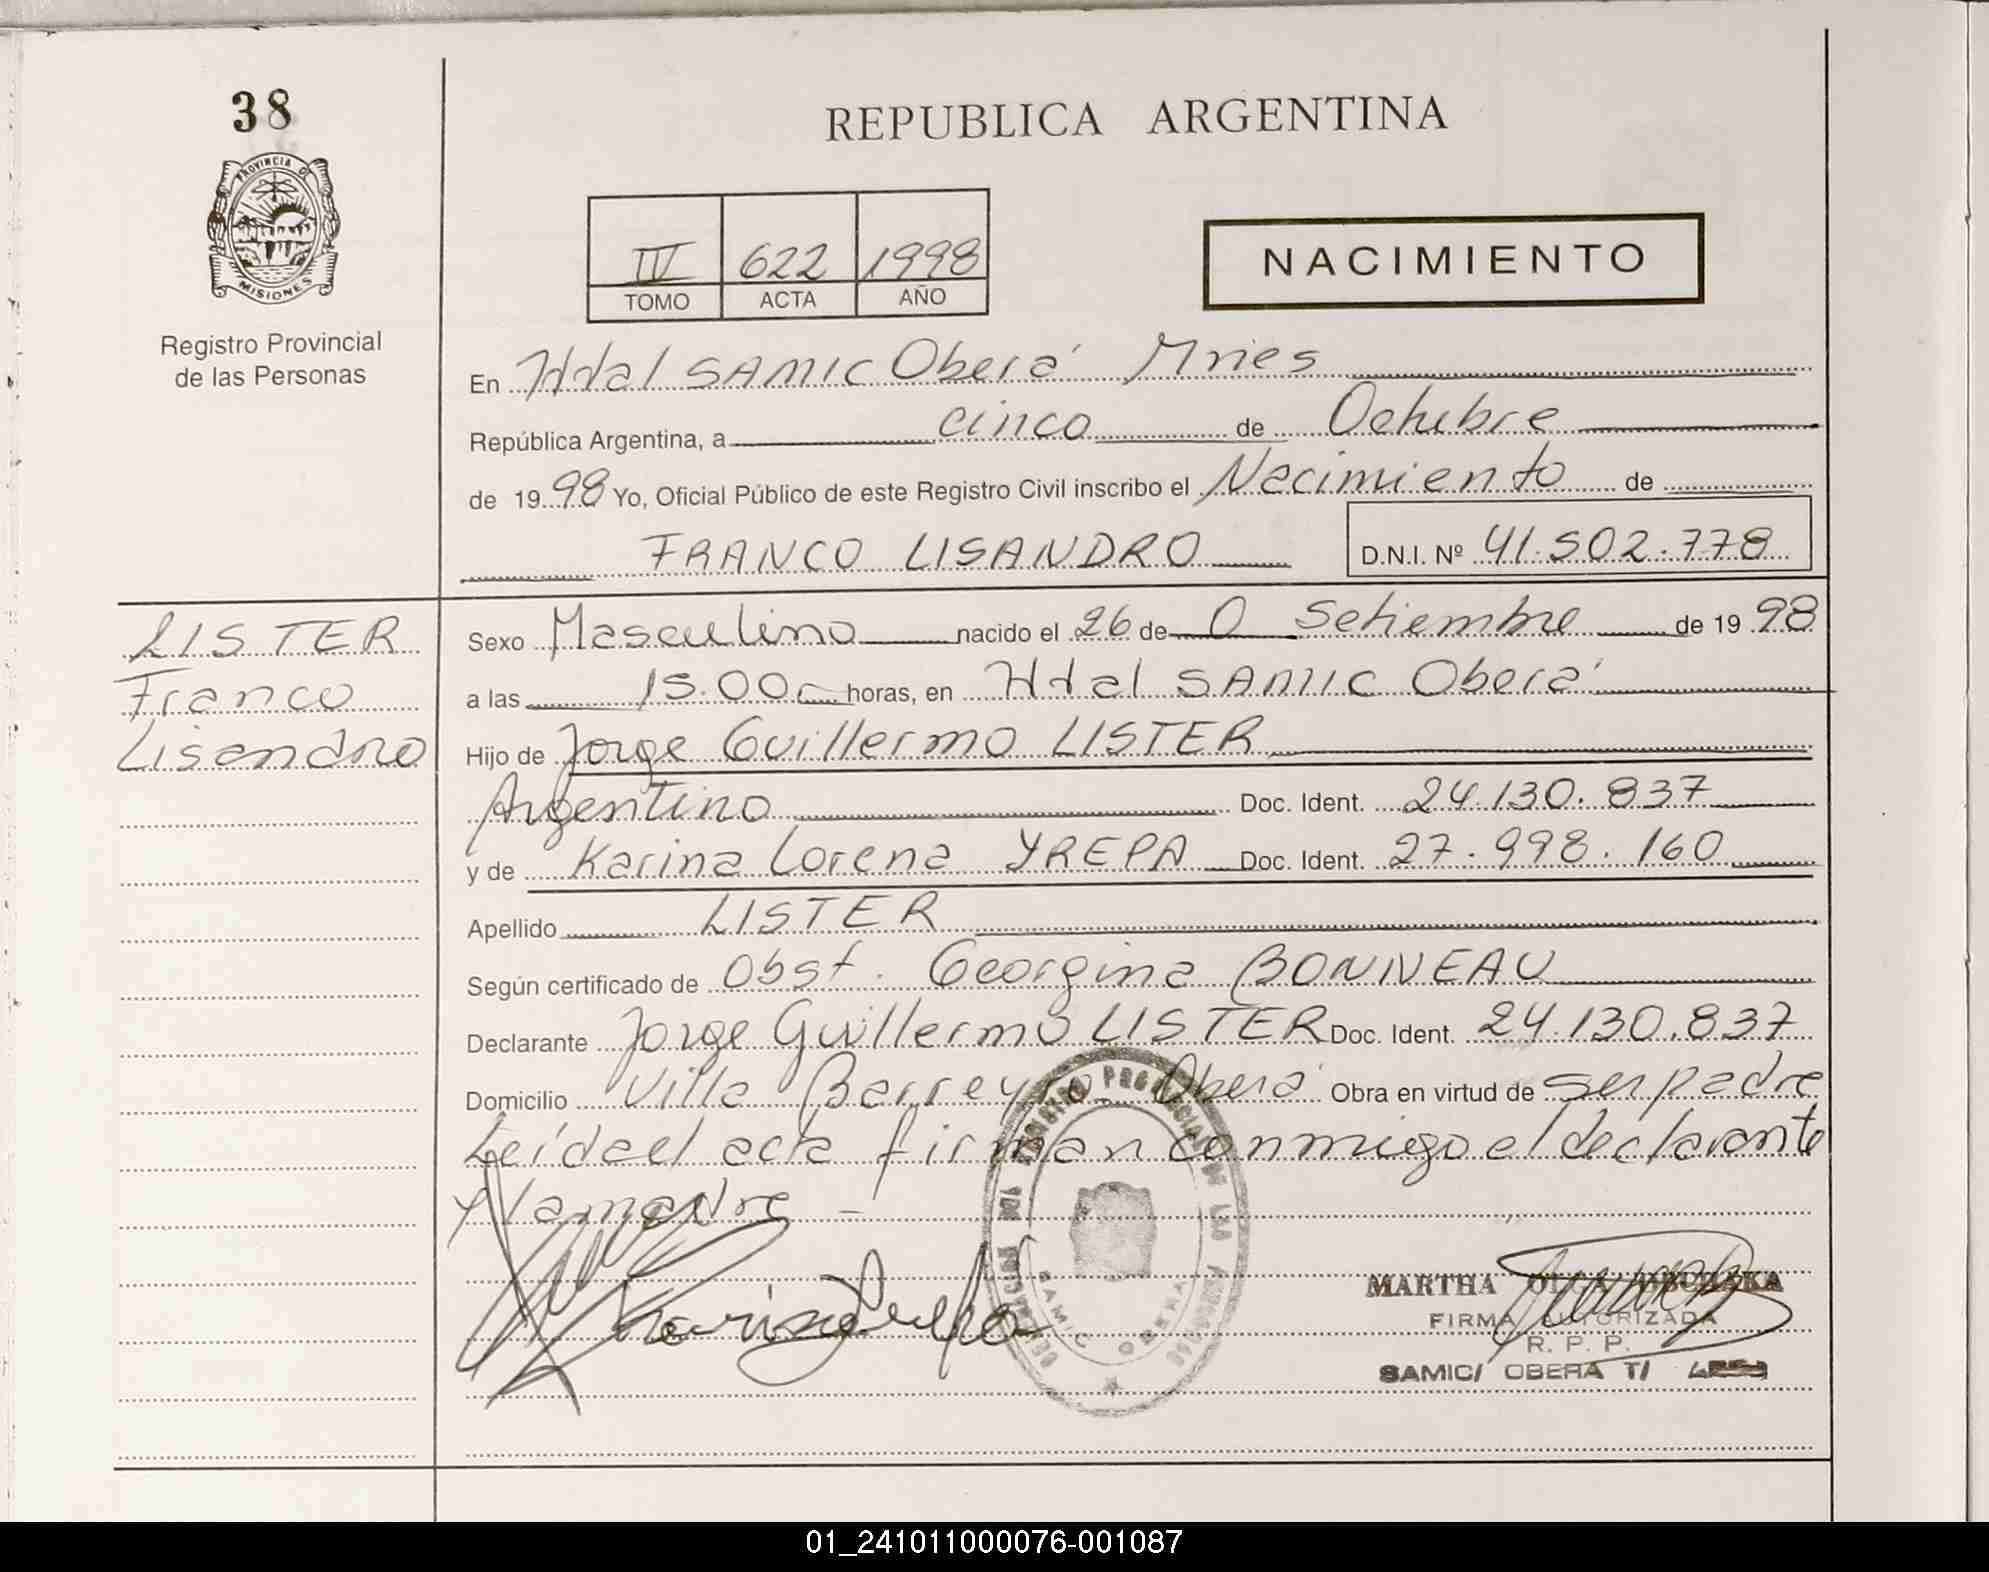 38
REPUBLICA ARGENTINA
PROVINCIA DE
MISIONES
Registro Provincial
de las Personas
IV 622 1998
TOMO ACTA AÑO
NACIMIENTO
En Hdal SAMIC Oberá Mnes
República Argentina, a cinco de Octubre
de 1998 Yo, Oficial Público de este Registro Civil inscribo el Nacimiento de
FRANCO LISANDRO D.N.I. Nº 41.502.778
LISTER
Franco
Lisandro
Sexo Masculino nacido el 26 de O Setiembre de 1998
a las 15.00 horas, en Hdal SAMIC Oberá
Hijo de Jorge Guillermo LISTER
Argentino Doc. Ident. 24.130.837
y de Karina Lorena YREPA Doc. Ident. 27.998.160
Apellido LISTER
Según certificado de Obst. Georgina BONNEAU
Declarante Jorge Guillermo LISTER Doc. Ident. 24.130.837
Domicilio Villa Barreyro Oberá Obra en virtud de ser padre
Leída el acta firman conmigo el declarante
y la madre -
REGISTRO PROVINCIAL DE LAS PERSONAS
SAMIC OBERA
MARTHA
FIRMA AUTORIZADA
R. P. P.
SAMIC/ OBERA T/
01_241011000076-001087